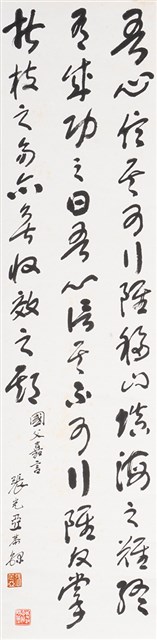 吾心信其可行雖移山填海之難終
有成功之日吾心信其不可行雖反掌
折枝之易亦無收效之期
國父嘉言
張光亞錄